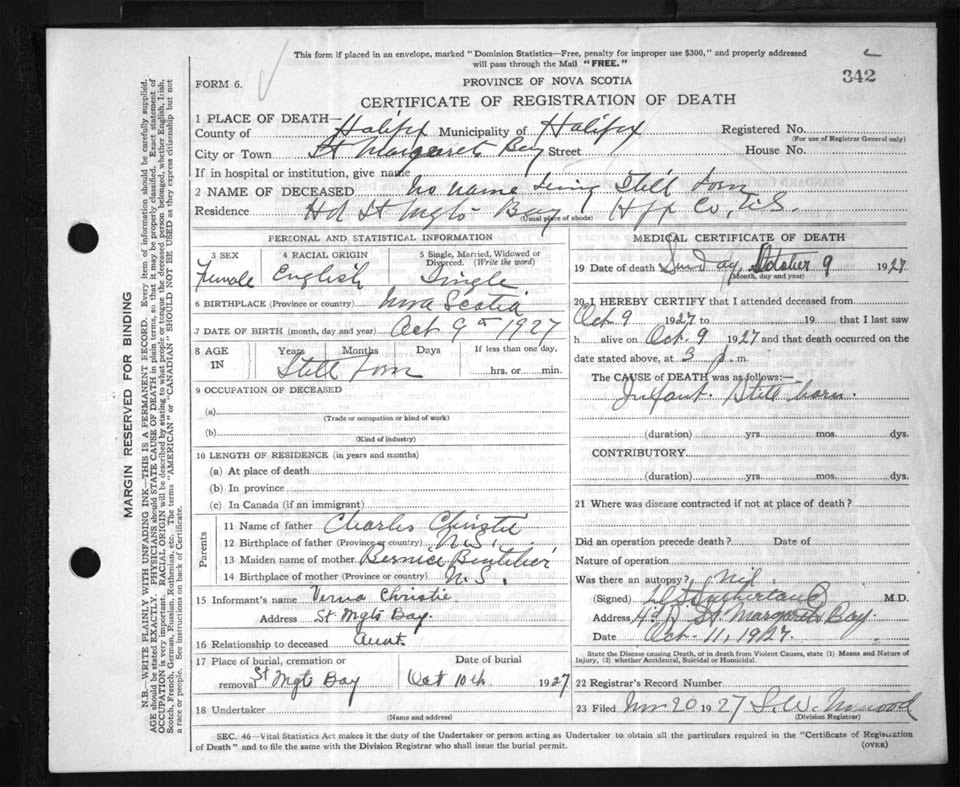 This form if placed in an envelope, marked "Dominion Statistics—Free, penalty for improper use $300," and properly addressed
will pass through the Mail "FREE."
342
FORM 6.
PROVINCE OF NOVA SCOTIA
CERTIFICATE OF REGISTRATION OF DEATH
1 PLACE OF DEATH—
County of Halifx Municipality of Halifx Registered No.
(For use of Registrar General only)
City or Town St Margarets Bay Street House No.
If in hospital or institution, give name
2 NAME OF DECEASED no name being Still born
Residence Hd St Mgts Bay Hfx Co, N.S.
(Usual place of abode)
PERSONAL AND STATISTICAL INFORMATION
3 SEX 4 RACIAL ORIGIN 5 Single, Married, Widowed or
Divorced. (Write the word)
Female English Single
6 BIRTHPLACE (Province or country) Nova Scotia
7 DATE OF BIRTH (month, day and year) Oct 9 1927
8 AGE IN Years Months Days If less than one day,
Still born hrs. or min.
9 OCCUPATION OF DECEASED
(a)
(Trade or occupation or kind of work)
(b)
(Kind of industry)
10 LENGTH OF RESIDENCE (in years and months)
(a) At place of death
(b) In province
(c) In Canada (if an immigrant)
Parents
11 Name of father Charles Christie
12 Birthplace of father (Province or country) N.S.
13 Maiden name of mother Bernice
14 Birthplace of mother (Province or country) N.S.
15 Informant's name Verna Christie
Address St Mgts Bay.
16 Relationship to deceased Aunt
17 Place of burial, cremation or Date of burial
removal St Mgts Bay Oct 10th 1927
18 Undertaker
(Name and address)
MEDICAL CERTIFICATE OF DEATH
19 Date of death Sunday, October 9 1927
(Month, day and year)
20 I HEREBY CERTIFY that I attended deceased from
Oct 9 1927 to 19 that I last saw
h alive on Oct. 9 1927 and that death occurred on the
date stated above, at 3 p. m.
The CAUSE of DEATH was as follows:—
Infant. Still born.
(duration) yrs. mos. dys.
CONTRIBUTORY
(duration) yrs. mos. dys.
21 Where was disease contracted if not at place of death?
Did an operation precede death? Date of
Nature of operation
Was there an autopsy? Nil
(Signed) Sutherland M.D.
Address Hd St. Margarets Bay
Date Oct. 11, 1927
State the Disease causing Death, or in death from Violent Causes, state (1) Means and Nature of
Injury, (2) whether Accidental, Suicidal or Homicidal.
22 Registrar's Record Number
23 Filed Nov 20 1927 S. W.
(Division Registrar)
SEC. 46—Vital Statistics Act makes it the duty of the Undertaker or person acting as Undertaker to obtain all the particulars required in the "Certificate of Registration
of Death" and to file the same with the Division Registrar who shall issue the burial permit.
(OVER)
MARGIN RESERVED FOR BINDING
N.B.—WRITE PLAINLY WITH UNFADING INK—THIS IS A PERMANENT RECORD. Every item of information should be carefully supplied.
AGE should be stated EXACTLY. PHYSICIANS should STATE CAUSE OF DEATH in plain terms, so that it may be properly classified. Exact statement of
OCCUPATION is very important. RACIAL ORIGIN will be described by stating to what people or tongue the deceased person belonged, whether English, Irish,
Scotch, French, German, Russian, Ruthenian, etc. The terms "AMERICAN" or "CANADIAN" SHOULD NOT BE USED as they express citizenship but not
a race or people. See instructions on back of Certificate.